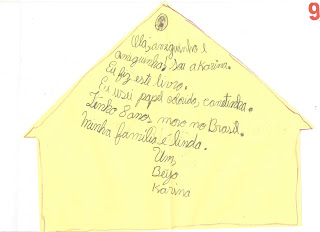 9
Olá, amiguinho e
amiguinha, sou a Karina.
Eu fiz este livro.
Eu usei papel colorido, canetinha.
Tenho 8 anos moro no Brasil.
Minha família é linda.
Um,
Beijo
Karina